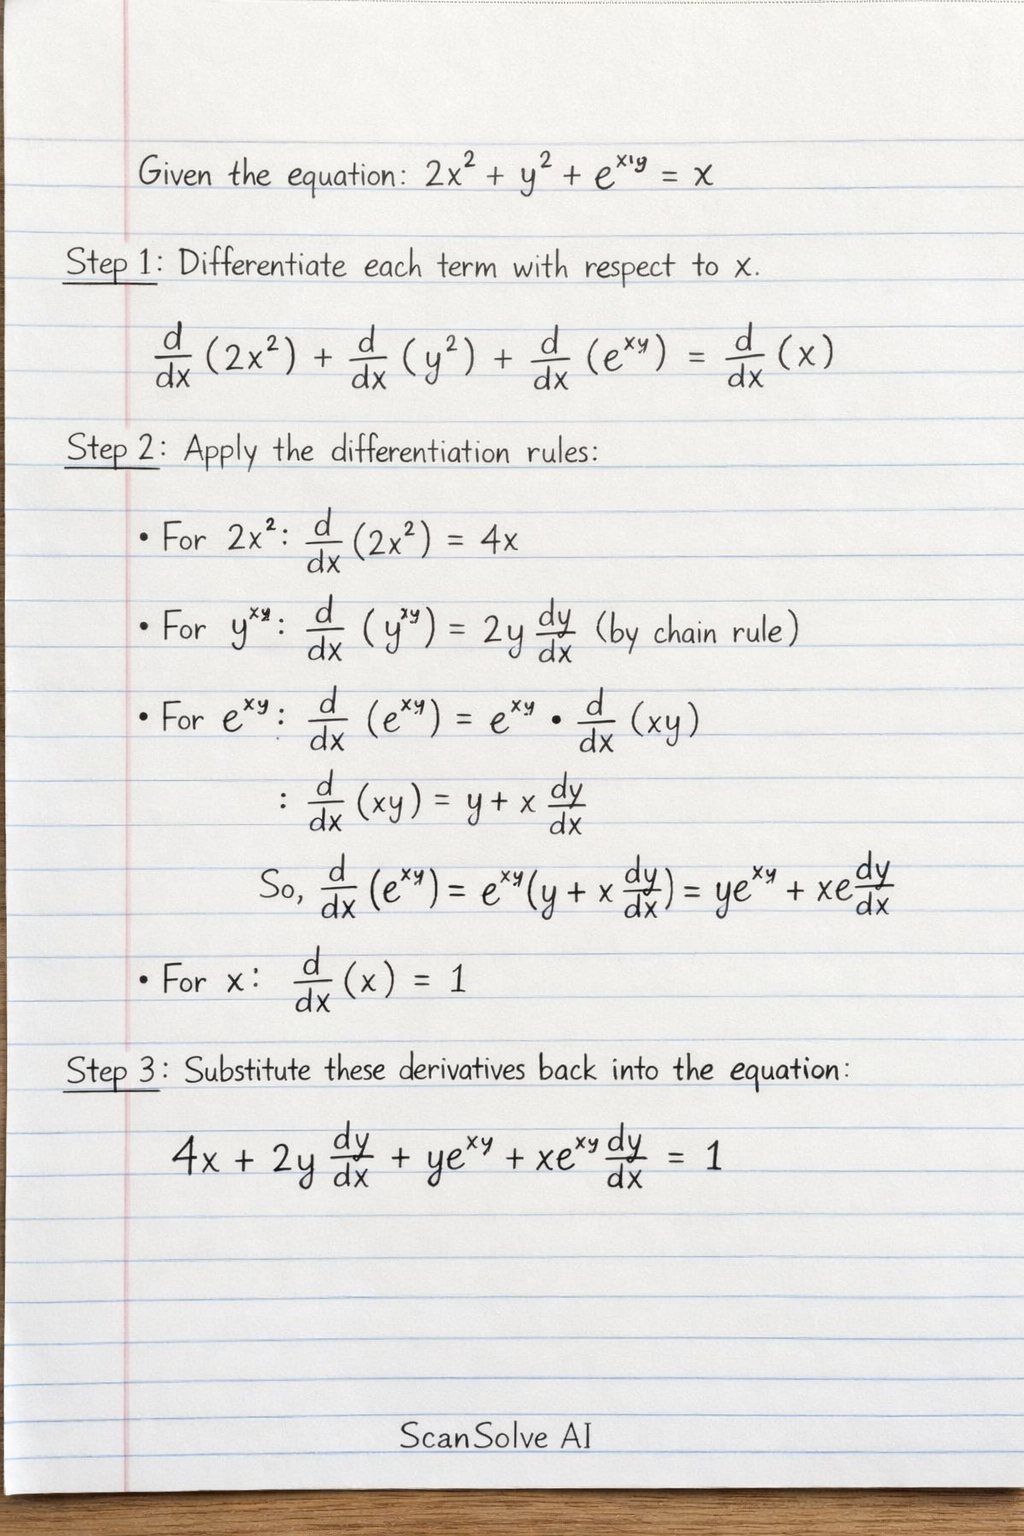 Given the equation: 2x² + y² + e^(x'y) = x
Step 1: Differentiate each term with respect to x.
d/dx (2x²) + d/dx (y²) + d/dx (e^(xy)) = d/dx (x)
Step 2: Apply the differentiation rules:
• For 2x²: d/dx (2x²) = 4x
• For y^(xy): d/dx (y^(xy)) = 2y dy/dx (by chain rule)
• For e^(xy): d/dx (e^(xy)) = e^(xy) • d/dx (xy)
: d/dx (xy) = y + x dy/dx
So, d/dx (e^(xy)) = e^(xy)(y + x dy/dx) = ye^(xy) + xe dy/dx
• For x: d/dx (x) = 1
Step 3: Substitute these derivatives back into the equation:
4x + 2y dy/dx + ye^(xy) + xe^(xy) dy/dx = 1
ScanSolve AI